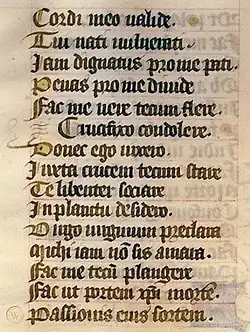 Cordi meo valide.
Tui nati vulnerati.
Iam dignatus pro me pati.
Penas pro me divide
Fac me vere tecum flere.
Crucifixo condolere.
Donec ego vixero.
Iuxta crucem tecum stare
Te libenter sociare
In planctu desidero.
Virgo virginum preclara
Michi iam nō sis amara.
Fac me tecū plangere
Fac ut portem xp̄i mortē.
Passionis eius sortem.